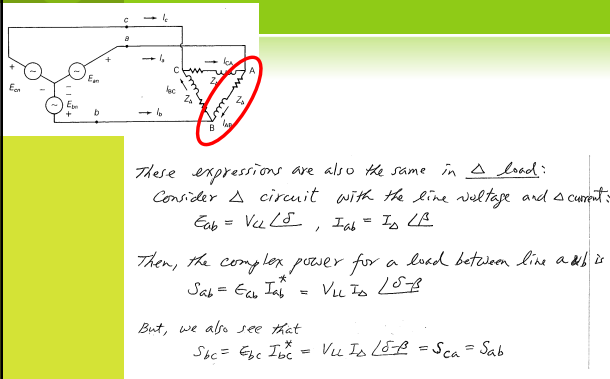 c → Ic
a → Ia
Ecn Ean
Ebn
b → Ib
C → ICA A
IBC ZΔ ZΔ ZΔ
B IAB
These expressions are also the same in Δ load:
Consider Δ circuit with the line voltage and Δ current:
Eab = VLL∠δ , Iab = IΔ ∠β
Then, the complex power for a load between line a & b is
Sab = Eab Iab* = VLL IΔ ∠δ-β
But, we also see that
Sbc = Ebc Ibc* = VLL IΔ ∠δ-β = Sca = Sab